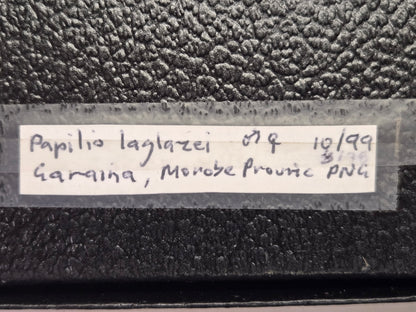 Papilio laglazei ♂♀ 10/99
Garaina, Morobe Provinc PNG